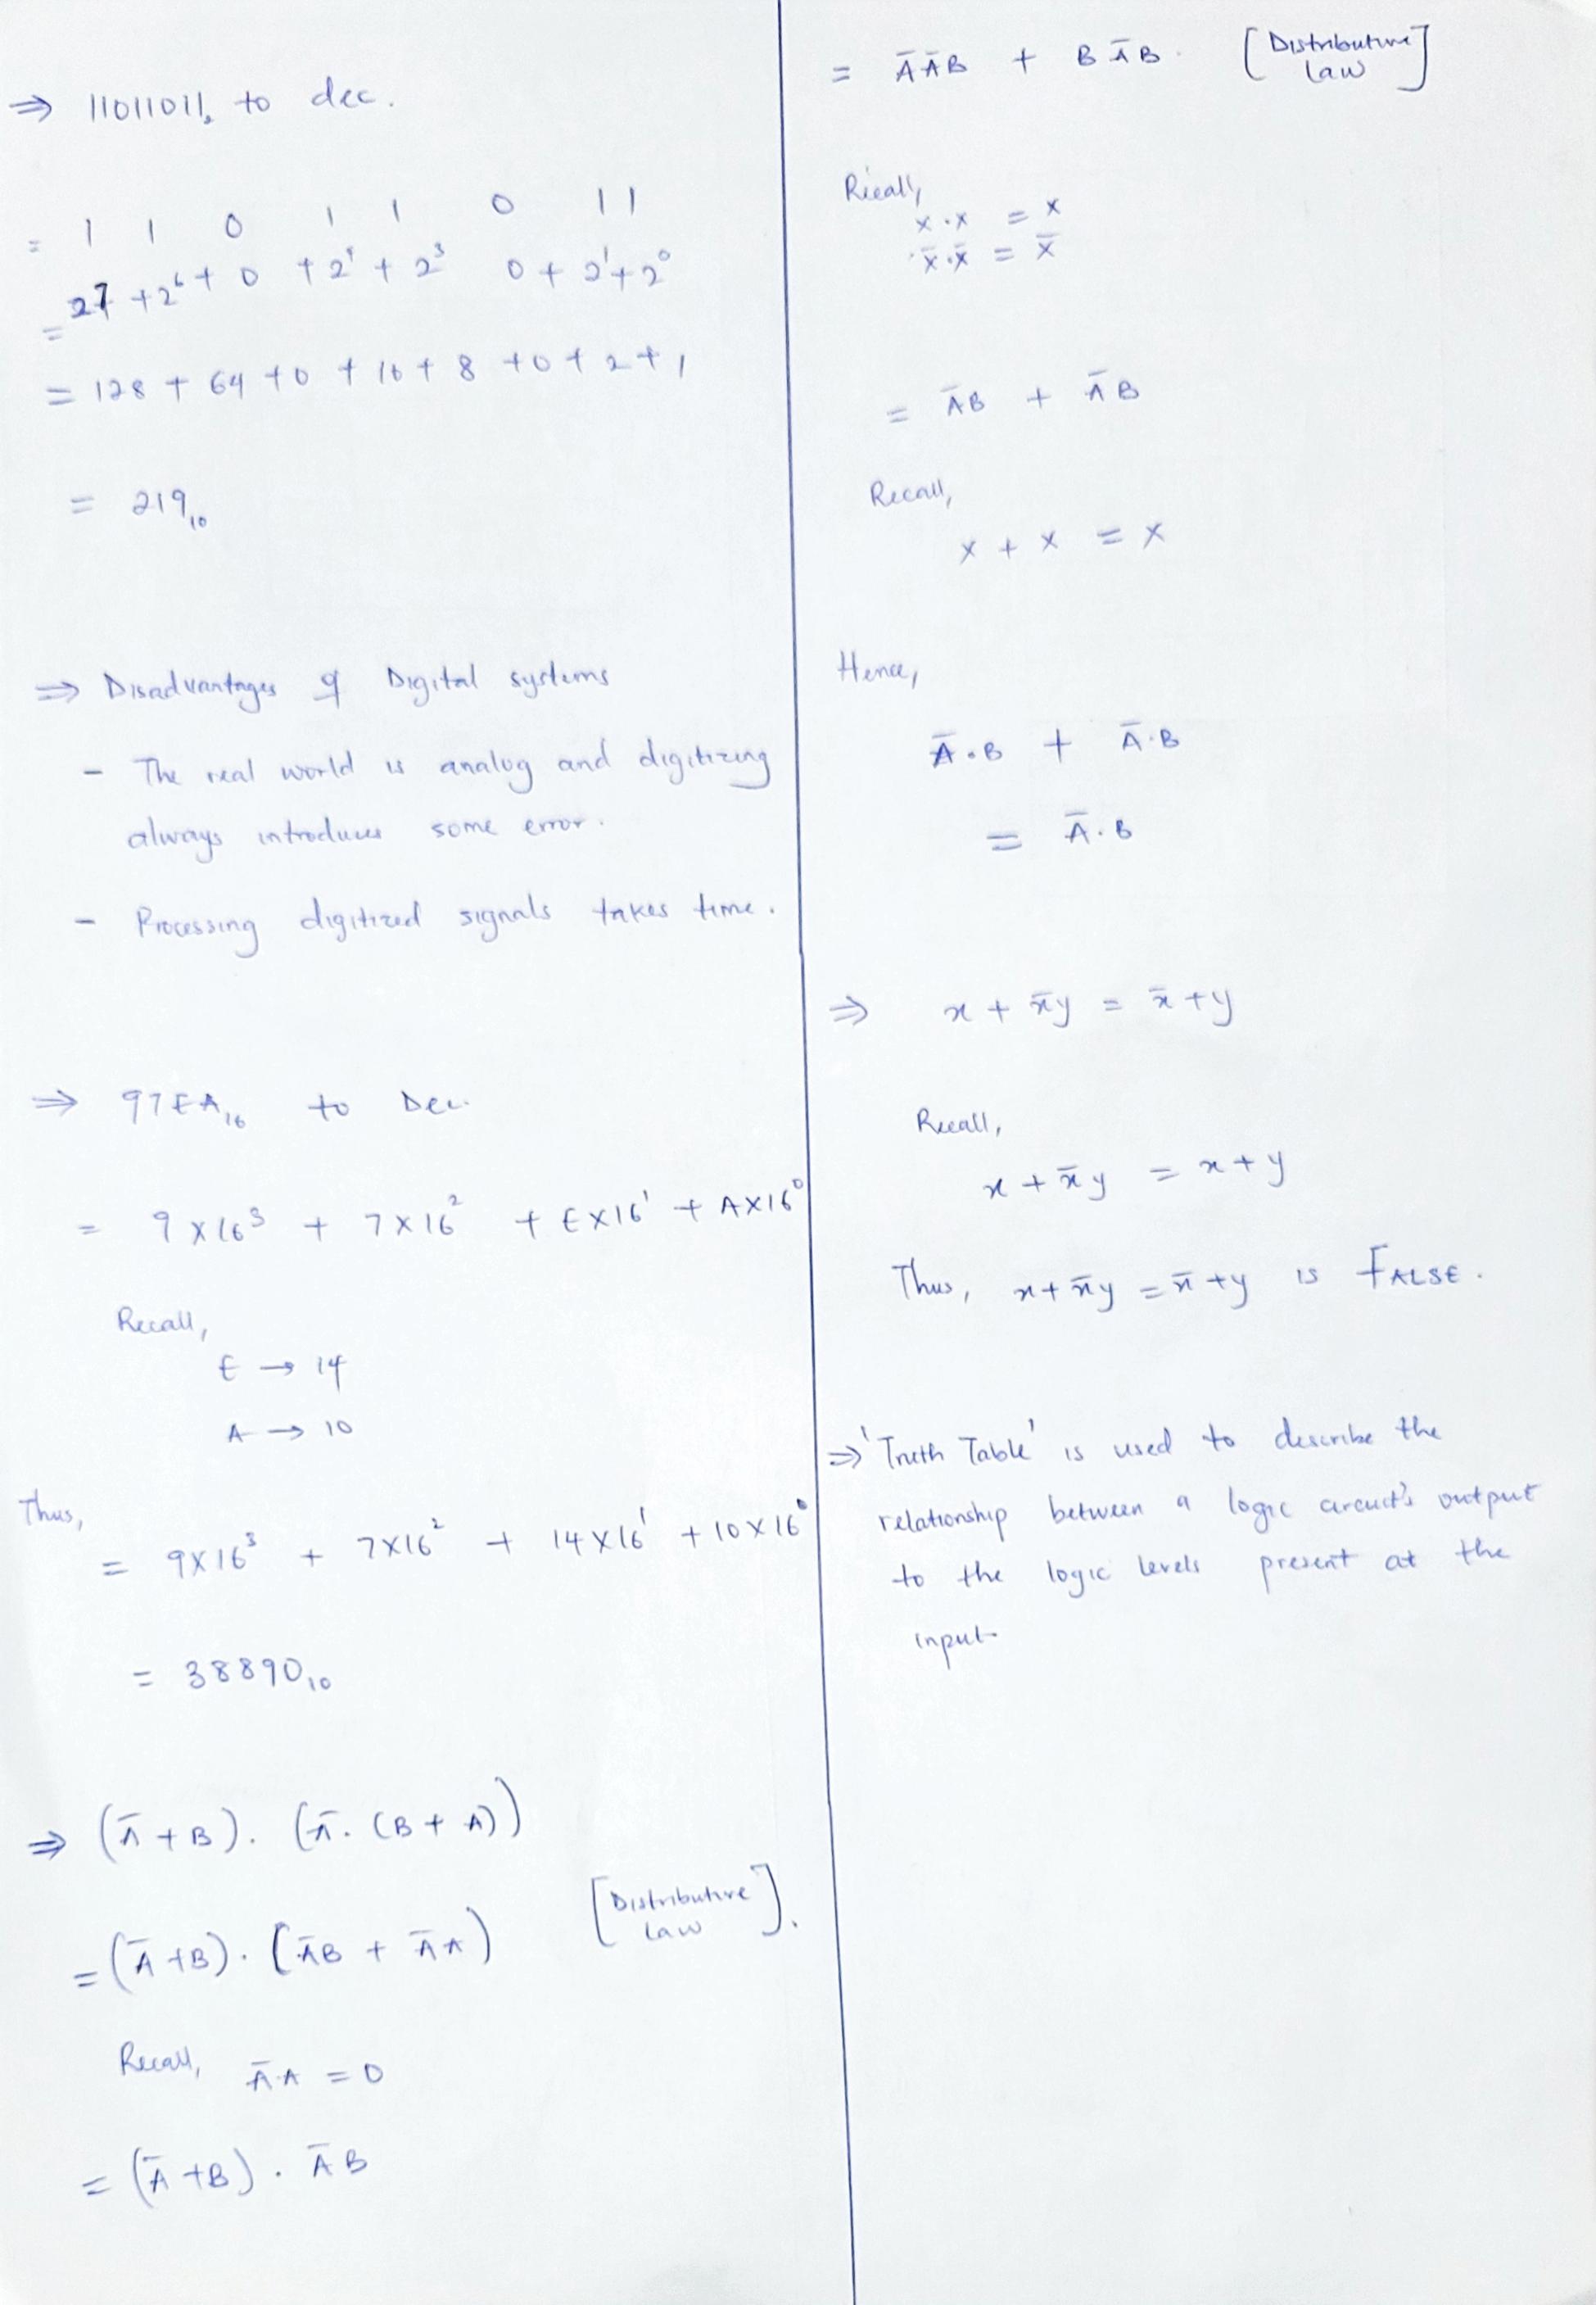 ⇒ 11011011₂ to dec.
= 1 1 0 1 1 0 1 1
= 2⁷ + 2⁶ + 0 + 2⁴ + 2³ 0 + 2¹ + 2⁰
= 128 + 64 + 0 + 16 + 8 + 0 + 2 + 1
= 219₁₀
⇒ Disadvantages of Digital systems
- The real world is analog and digitizing
always introduces some error.
- Processing digitized signals takes time.
⇒ 97EA₁₆ to Dec.
= 9 × 16³ + 7 × 16² + E×16¹ + A×16⁰
Recall,
E → 14
A → 10
Thus,
= 9×16³ + 7×16² + 14×16¹ + 10×16⁰
= 38890₁₀
⇒ (Ā + B). (Ā. (B + A))
= (Ā + B). (ĀB + ĀA) [Distributive
Law].
Recall, ĀA = 0
= (Ā + B). ĀB
= ĀĀB + BĀB. [Distributive
Law]
Recall,
x.x = x
x̄.x̄ = x̄
= ĀB + ĀB
Recall,
x + x = x
Hence,
Ā.B + Ā.B
= Ā.B
⇒ x + x̄y = x̄ + y
Recall,
x + x̄y = x + y
Thus, x + x̄y = x̄ + y is FALSE.
⇒ 'Truth Table' is used to describe the
relationship between a logic circuit's output
to the logic levels present at the
input